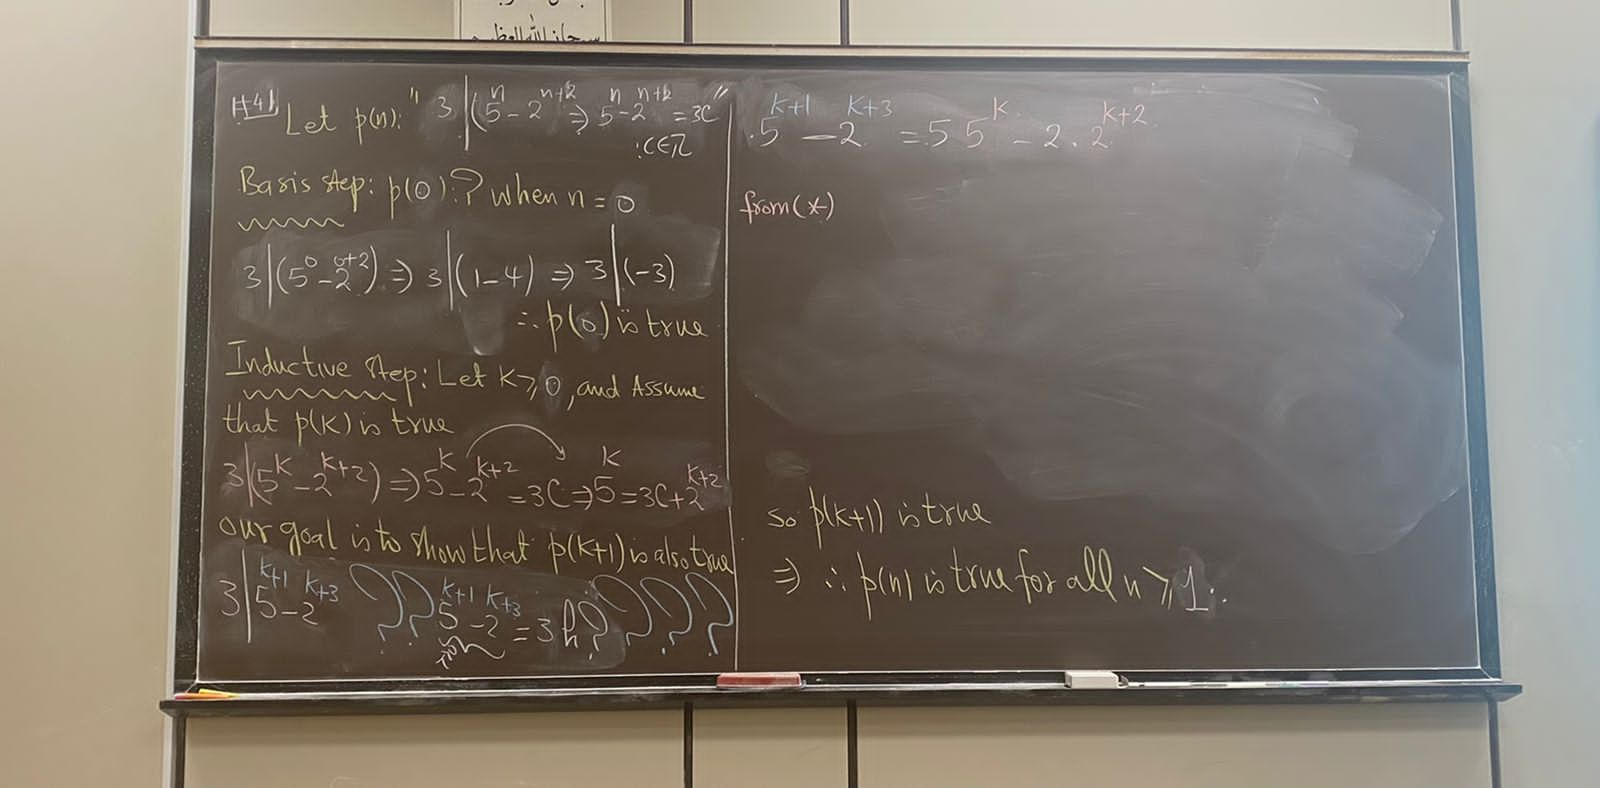 سبحان الله العظيم
#4| Let p(n): " 3 | (5ⁿ - 2ⁿ⁺² ⇒ 5ⁿ - 2ⁿ⁺² = 3C "
: C ∈ ℤ
Basis step: p(0): ? when n = 0
3 | (5⁰ - 2⁰⁺²) ⇒ 3 | (1 - 4) ⇒ 3 | (-3)
∴ p(0) is true
Inductive step: Let K ≥ 0, and Assume
that p(K) is true
3 | (5ᴷ - 2ᴷ⁺²) ⇒ 5ᴷ - 2ᴷ⁺² = 3C ⇒ 5ᴷ = 3C + 2ᴷ⁺²
our goal is to show that p(K+1) is also true
3 | 5ᴷ⁺¹ - 2ᴷ⁺³ ?? 5ᴷ⁺¹ - 2ᴷ⁺³ = 3h? ???
.5ᴷ⁺¹ - 2ᴷ⁺³ = 5 5ᴷ - 2 . 2ᴷ⁺²
from (*)
so p(K+1) is true
⇒ ∴ p(n) is true for all n ≥ 1..